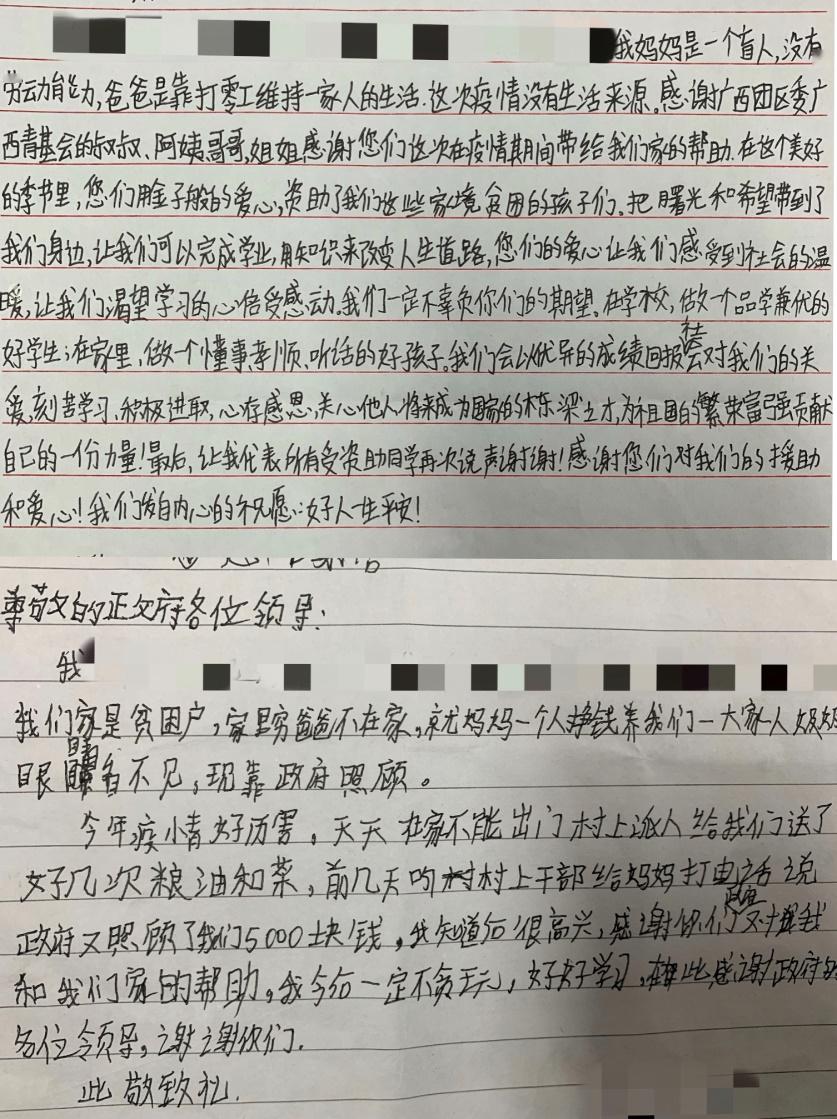 我妈妈是一个盲人,没有
劳动能力,爸爸是靠打零工维持一家人的生活.这次疫情没有生活来源。感谢广西团区委广
西青基会的叔叔、阿姨、哥哥,姐姐感谢您们这次在疫情期间带给我们家的帮助.在这个美好
的季节里,您们用金子般的爱心,资助了我们这些家境贫困的孩子们。把曙光和希望带到了
我们身边,让我们可以完成学业,用知识来改变人生道路,您们的爱心让我们感受到社会的温
暖,让我们渴望学习的心倍受感动。我们一定不辜负你们的期望。在学校,做一个品学兼优的
好学生;在家里、做一个懂事、孝顺、听话的好孩子。我们会以优异的成绩回报社会对我们的关
爱,刻苦学习、积极进取,心存感恩,关心他人,将来成为国家的栋梁之才,为祖国的繁荣富强贡献
自己的一份力量!最后,让我代表所有受资助同学再次说声谢谢!感谢您们对我们的援助
和爱心!我们发自内心的祝愿:好人一生平安!
尊敬的政府各位领导:
我
我们家是贫困户,家里穷爸爸不在家,就妈妈一个人挣钱养我们一大家人奶奶
眼睛看不见,现靠政府照顾。
今年疫情好历害,天天在家不能出门村上派人给我们送了
好几次粮油和菜,前几天的村上干部给妈妈打电话说
政府又照顾了我们5000块钱,我知道后很高兴,感谢你们政府对我
和我们家的帮助,我今后一定不贪玩,好好学习,在此感谢政府的
各位领导,谢谢你们.
此敬致礼.